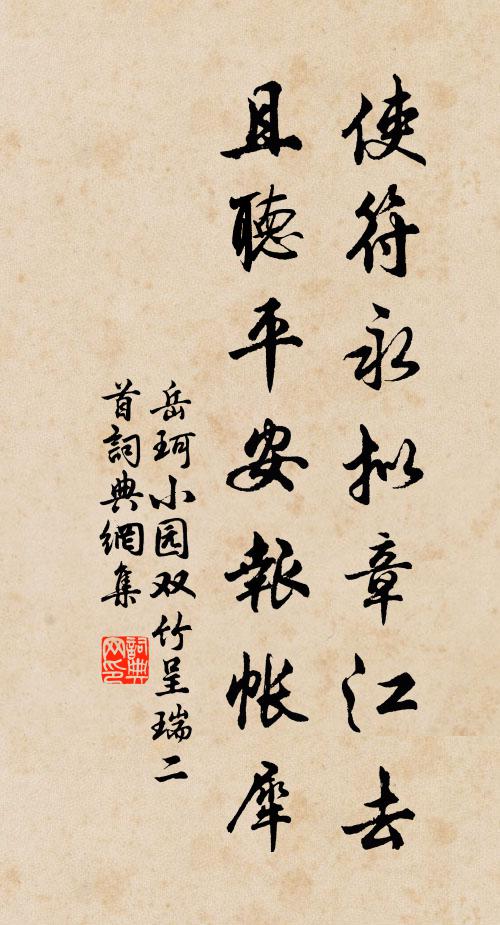 使符永拟章江去
且聽平安報帐犀
岳珂小园双竹呈瑞二
首詞典網集
詞典
网印